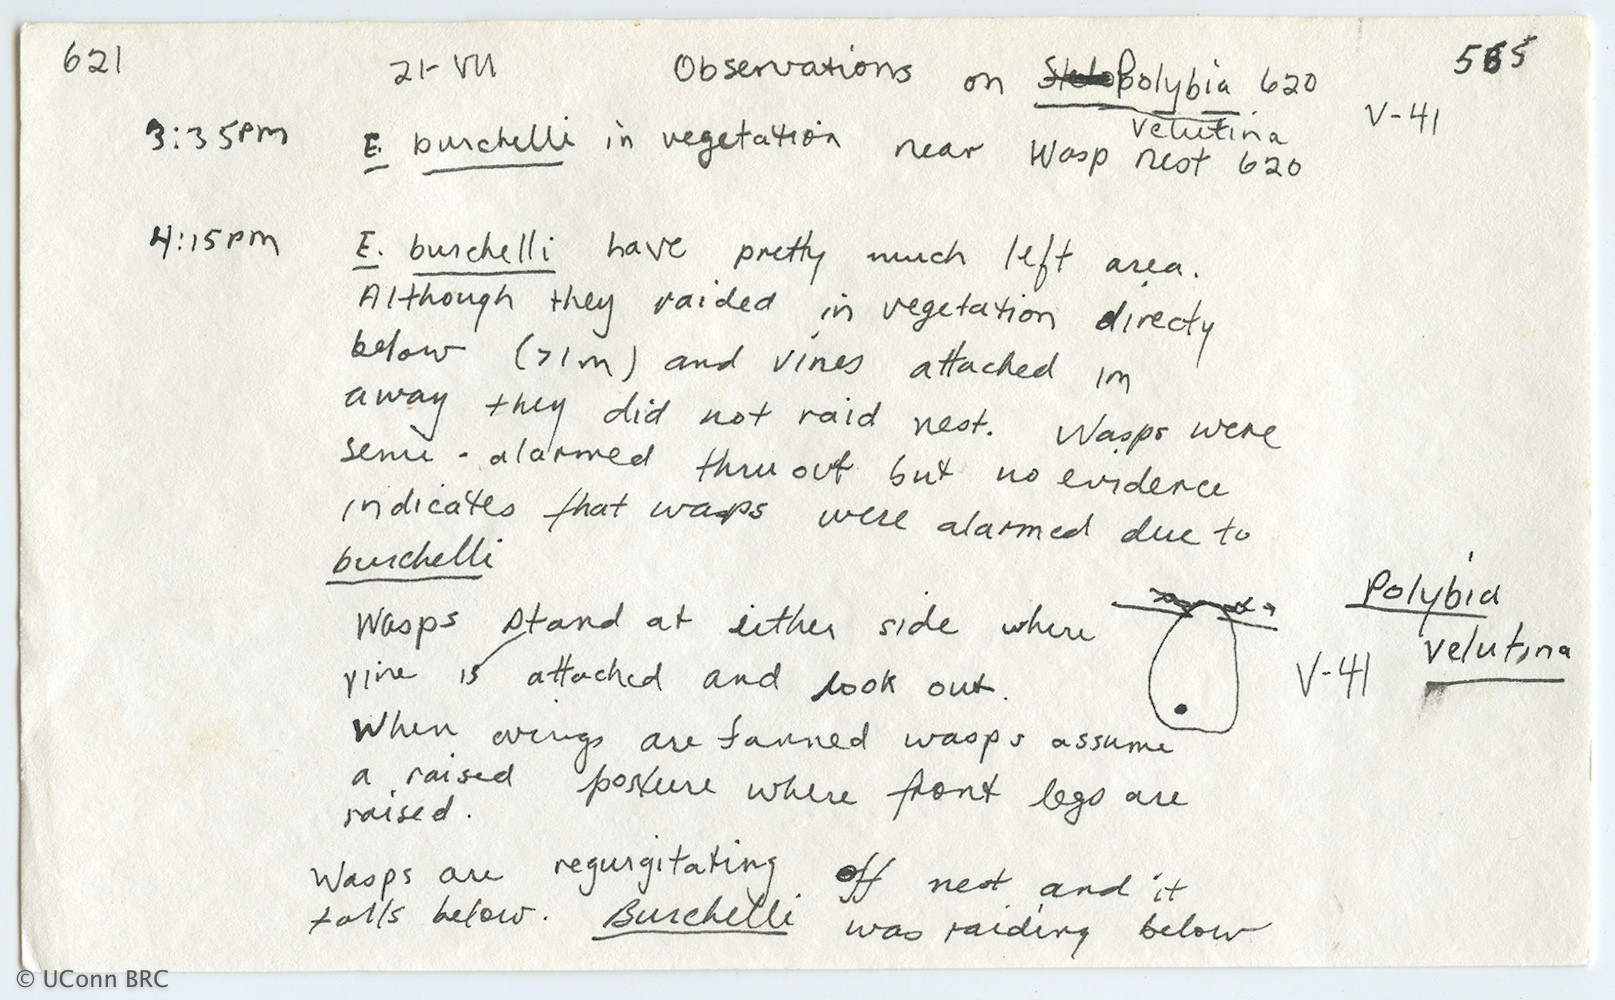 621 21-VII Observations on Polybia 620 565
velutina V-41
3:35pm E. burchelli in vegetation near Wasp nest 620
4:15pm E. burchelli have pretty much left area.
Although they raided in vegetation directy
below (>1m) and vines attached 1m
away they did not raid nest. Wasps were
semi-alarmed thruout but no evidence
indicates that wasps were alarmed due to
burchelli
Wasps stand at either side where
vine is attached and look out.
Polybia
velutina
V-41
When wings are fanned wasps assume
a raised posture where front legs are
raised.
Wasps are regurgitating off nest and it
falls below. Burchelli was raiding below
© UConn BRC